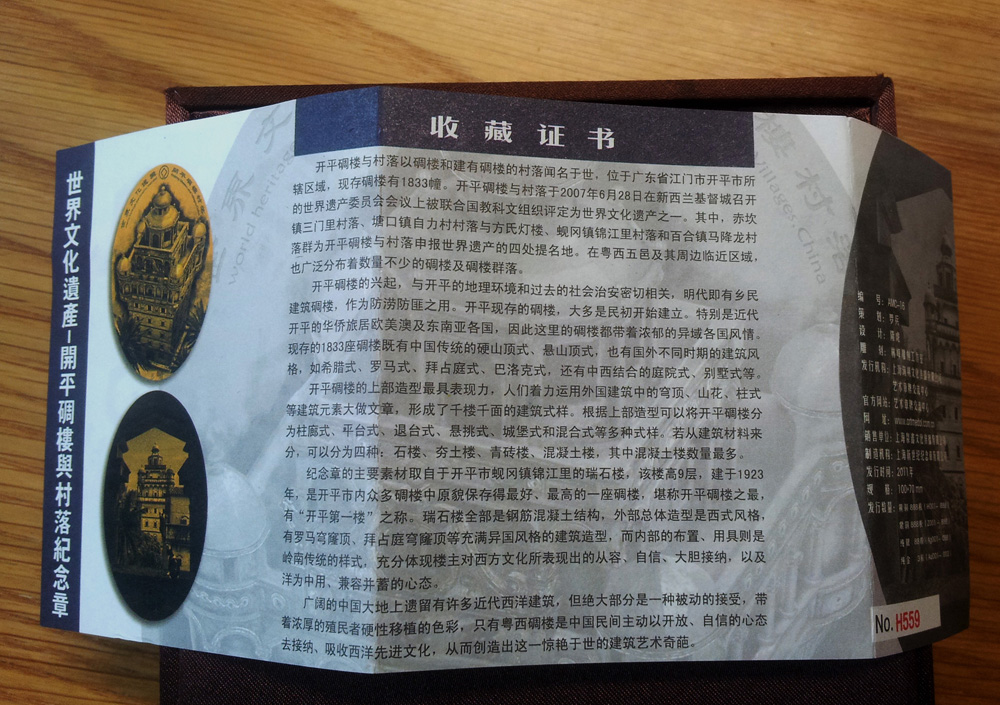 世界文化遺產-開平碉樓與村落紀念章
世界
world heritage
收藏证书
开平碉楼与村落以碉楼和建有碉楼的村落闻名于世，位于广东省江门市开平市所
辖区域，现存碉楼有1833幢。开平碉楼与村落于2007年6月28日在新西兰基督城召开
的世界遗产委员会会议上被联合国教科文组织评定为世界文化遗产之一。其中，赤坎
镇三门里村落、塘口镇自力村村落与方氏灯楼、蚬冈镇锦江里村落和百合镇马降龙村
落群为开平碉楼与村落申报世界遗产的四处提名地。在粤西五邑及其周边临近区域，
也广泛分布着数量不少的碉楼及碉楼群落。
开平碉楼的兴起，与开平的地理环境和过去的社会治安密切相关，明代即有乡民
建筑碉楼，作为防涝防匪之用。开平现存的碉楼，大多是民初开始建立。特别是近代
开平的华侨旅居欧美澳及东南亚各国，因此这里的碉楼都带着浓郁的异域各国风情。
现存的1833座碉楼既有中国传统的硬山顶式、悬山顶式，也有国外不同时期的建筑风
格，如希腊式、罗马式、拜占庭式、巴洛克式，还有中西结合的庭院式、别墅式等。
开平碉楼的上部造型最具表现力，人们着力运用外国建筑中的穹顶、山花、柱式
等建筑元素大做文章，形成了千楼千面的建筑式样。根据上部造型可以将开平碉楼分
为柱廊式、平台式、退台式、悬挑式、城堡式和混合式等多种式样。若从建筑材料来
分，可以分为四种：石楼、夯土楼、青砖楼、混凝土楼，其中混凝土楼数量最多。
纪念章的主要素材取自于开平市蚬冈镇锦江里的瑞石楼，该楼高9层，建于1923
年，是开平市内众多碉楼中原貌保存得最好、最高的一座碉楼，堪称开平碉楼之最，
有“开平第一楼”之称。瑞石楼全部是钢筋混凝土结构，外部总体造型是西式风格，
有罗马穹窿顶、拜占庭穹窿顶等充满异国风格的建筑造型，而内部的布置、用具则是
岭南传统的样式，充分体现楼主对西方文化所表现出的从容、自信、大胆接纳，以及
洋为中用、兼容并蓄的心态。
广阔的中国大地上遗留有许多近代西洋建筑，但绝大部分是一种被动的接受，带
着浓厚的殖民者硬性移植的色彩，只有粤西碉楼是中国民间主动以开放、自信的心态
去接纳、吸收西洋先进文化，从而创造出这一惊艳于世的建筑艺术奇葩。
村落
Villages China
编 号：AMC-16
策 划：罗
设 计：
雕 制：
发行机构：上海
官方网站：
网 址：www.
销售单位：上海
制造机构：上海
发行时间：2011年
规 格：100×70 mm
发行数量：
No. H559